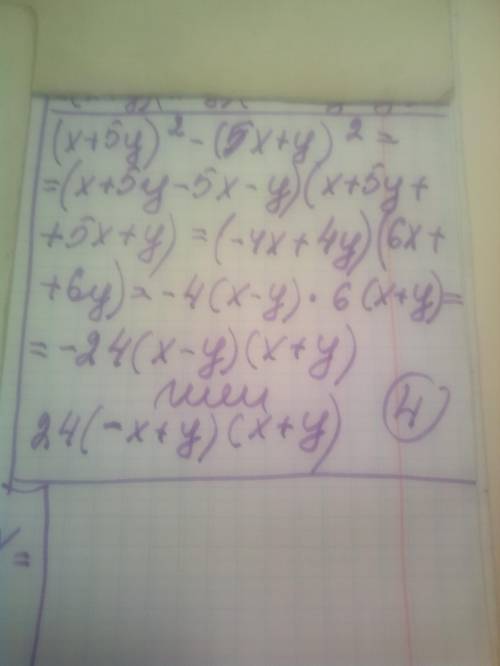 (x+5y)² - (5x+y)² =
=(x+5y-5x-y)(x+5y+
+5x+y) = (-4x+4y)(6x+
+6y) = -4(x-y)·6(x+y)=
= -24(x-y)(x+y)
или
24(-x+y)(x+y)
4
=